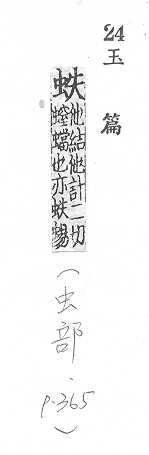 24
玉篇
蛈
他結他計二切
螲蟷也亦蛈蝪
(虫部.p.365)